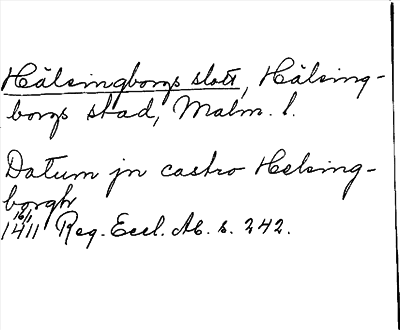 Hälsingborgs slott, Hälsing-
borgs stad, Malm. l.
Datum jn castro Helsing-
borgh
16/1
1411 Reg. Eccl. Ab. s. 242.